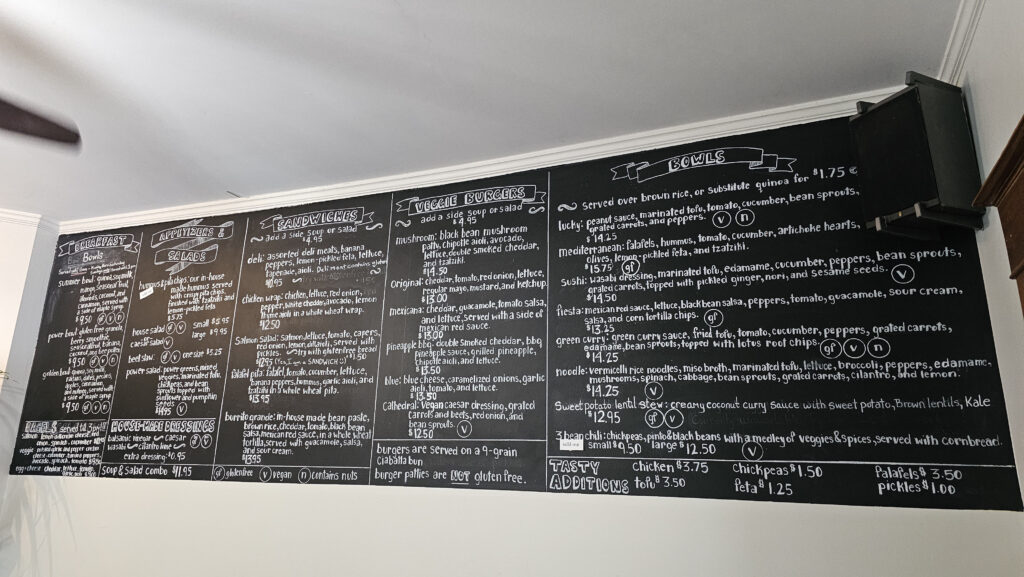 BREAKFAST
Bowls
summer bowl: quinoa, soymilk,
almonds, coconut, and
served with
a side of maple syrup
$9.50 d v n
power bowl: gluten free granola,
berry smoothie,
banana,
coconut and bee pollen
$9.50
golden bowl: quinoa, soy milk,
raisins, dates, pecans,
apples, cinnamon,
a side of maple syrup
9.50 d v n
BAGELS served til 3pm!!!
APPETIZERS &
SALADS
hummus & pita chips: our in-house
made hummus served
with crispy pita chips,
finished with tzatziki and
lemon-pickled feta
$5.75
house salad small $5.95
caesar salad large $9.95
beet slaw one size $5.25
power salad: power greens, mixed
veggies, marinated tofu,
chickpeas, and bean
sprouts topped with
sunflower and pumpkin
seeds
$9.95
HOUSE-MADE DRESSINGS
balsamic vinegar ~ caesar
wasabi ~ cilantro lime
extra dressing: $0.95
Soup & Salad combo $11.95
SANDWICHES
add a side soup or salad
$4.95
deli: assorted deli meats, banana
peppers, lemon-pickled feta, lettuce,
tapenade, aioli.
chicken wrap: chicken, lettuce, red onion,
pepper, white cheddar, avocado, lemon
thyme aioli in a whole wheat wrap.
$12.50
Salmon Salad: Salmon, lettuce, tomato, capers,
red onion, lemon, dill aioli, served with
pickles. ~try with gluten free bread
falafel pita: falafel, tomato, cucumber, lettuce,
banana peppers, hummus, garlic aioli, and
tzatziki in a whole wheat pita.
$13.95
burrito grande: in-house made bean paste,
brown rice, cheddar, tomato, black bean
salsa, mexican red sauce, in a whole wheat
tortilla, served with guacamole, salsa,
and sour cream.
$13.95
gf glutenfree v vegan n contains nuts
VEGGIE BURGERS
add a side soup or salad
$4.95
mushroom: black bean mushroom
patty, chipotle aioli, avocado,
lettuce, double smoked cheddar,
and tzatziki
$14.50
Original: cheddar, tomato, red onion, lettuce,
regular mayo, mustard, and ketchup
$13.00
mexicana: cheddar, guacamole, tomato, salsa,
and lettuce, served with a side of
mexican red sauce.
$13.00
pineapple bbq: double smoked cheddar, bbq
pineapple sauce, grilled pineapple,
chipotle aioli, and lettuce.
$13.50
blue: blue cheese, caramelized onions, garlic
aioli, tomato, and lettuce.
$13.50
Cathedral: Vegan caesar dressing, grated
carrots and beets, red onion, and
bean sprouts.
$12.50 v
burgers are served on a 9-grain
ciabatta bun
burger patties are NOT gluten free.
BOWLS
served over brown rice, or substitute quinoa for $1.75
lucky: peanut sauce, marinated tofu, tomato, cucumber, bean sprouts,
grated carrots, and peppers. v n
$14.25
mediterranean: falafels, hummus, tomato, cucumber, artichoke hearts,
olives, lemon-pickled feta, and tzatziki.
$15.75 gf
sushi: wasabi dressing, marinated tofu, edamame, cucumber, peppers, bean sprouts,
grated carrots, topped with pickled ginger, nori, and sesame seeds. v
$14.50
fiesta: mexican red sauce, lettuce, black bean salsa, peppers, tomato, guacamole, sour cream,
salsa, and corn tortilla chips. gf
$13.25
green curry: green curry sauce, fried tofu, tomato, cucumber, peppers, grated carrots,
edamame, bean sprouts, topped with lotus root chips. gf v n
$14.25
noodle: vermicelli rice noodles, miso broth, marinated tofu, lettuce, broccoli, peppers, edamame,
mushrooms, spinach, cabbage, bean sprouts, grated carrots, cilantro, and lemon.
$14.25 v
Sweet potato lentil stew: creamy coconut curry sauce with sweet potato, Brown lentils, Kale
$12.95 gf v
3 bean chili: chickpeas, pinto & black beans with a medley of veggies & spices, served with cornbread.
small $9.50 large $12.50 v
TASTY
ADDITIONS
Chicken $3.75 Chickpeas $1.50 Falafels $3.50
tofu $3.50 feta $1.25 pickles $1.00